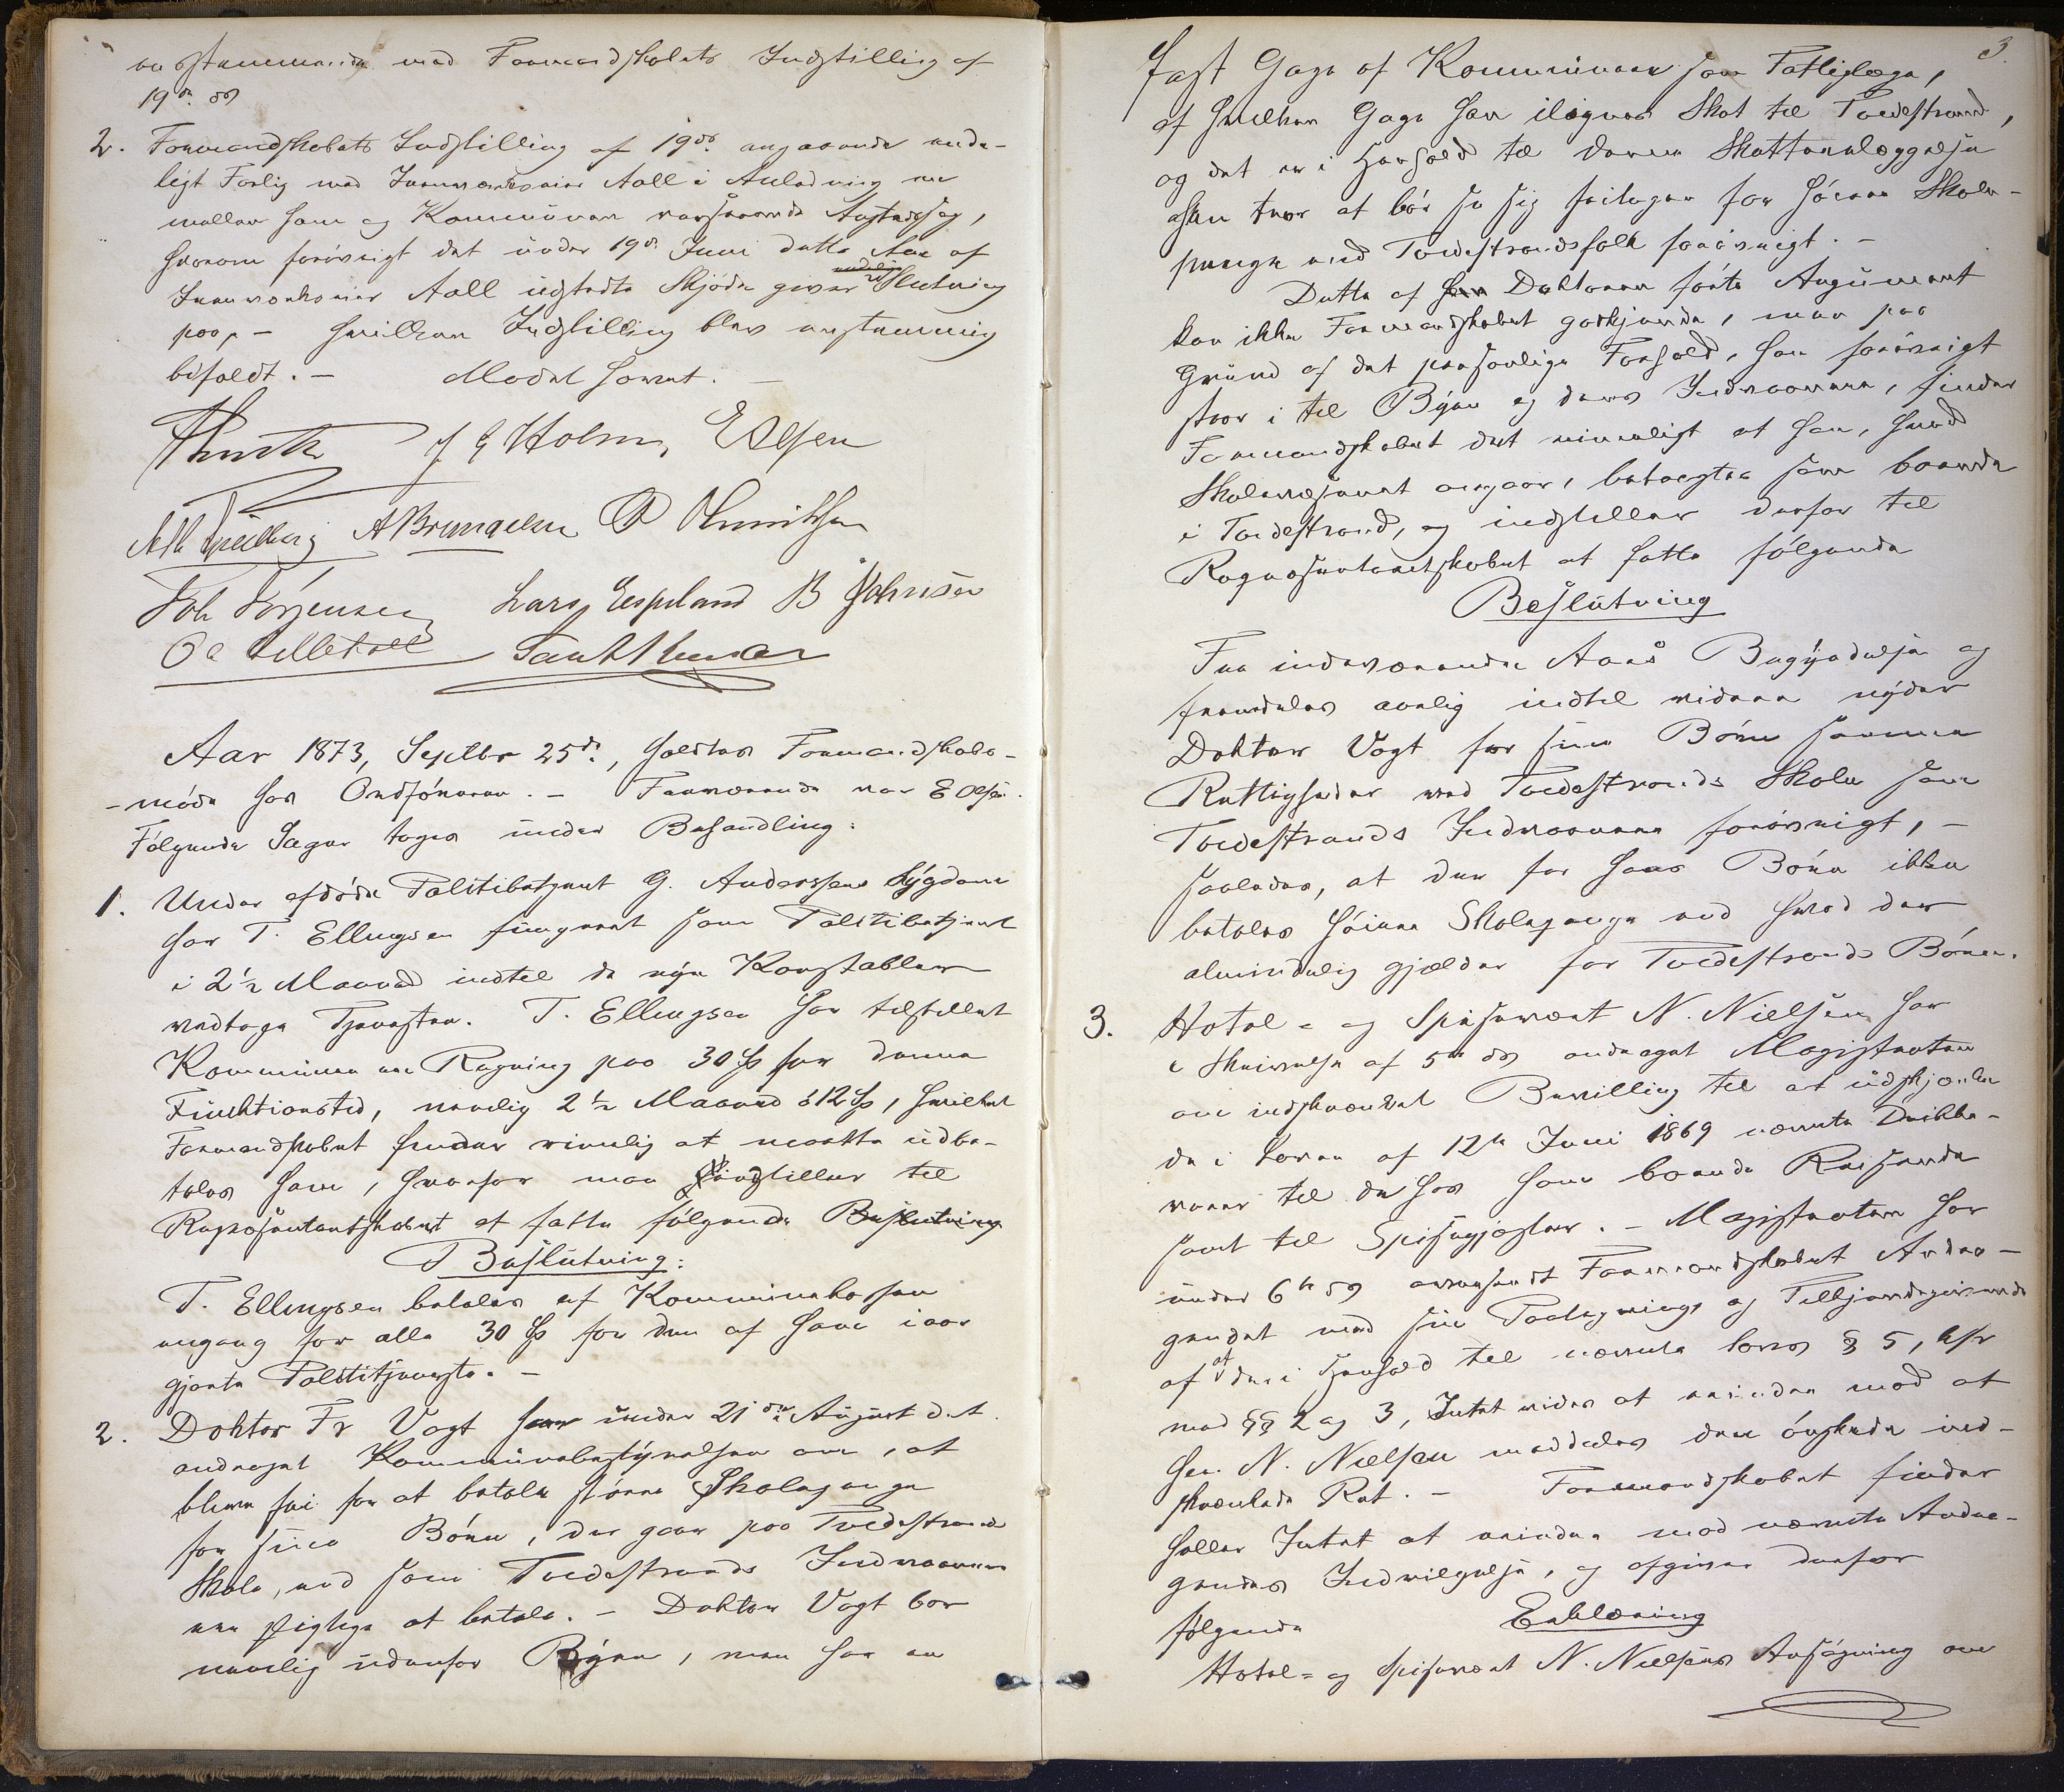 overstemmende med Formandskabets Indstilling af
19de ds
2. Formandskabets Indstilling af 19de angaaende ende-
ligt Forlig med Jernværkseier Aall i Anledning en
mellem ham og Kommunen værserende Aastedssag,
hvorom forøvrigt det under 19de Juni dette Aar af
Jernværkseier Aall udstedte Skjøde giver endelig Slutning
paa, – hvilken Indstilling blev enstemmig
bifaldt. – Mødet hævet. –
J G Holm, E Olsen
A Bremgelsen O Henriksen
Joh Jørgensen Lars Espeland B Johnsen
O C Lilletvedt
Aar 1873, Septbr 25de, holdtes Formandskabs-
-møde hos Ordføreren. – Fraværende var E Olsen.
Følgende Sager toges under Behandling:
1. Under afdøde Politibetjent G. Anderssens Sygdom
har T. Ellingsen fungeret som Politibetjent
i 2½ Maaned indtil de nye Konstabler
vedtoge Tjenesten. T. Ellingsen har tilstillet
Kommunen en Regning paa 30 Sp for denne
Funktionstid, nemlig 2½ Maaned á 12 Sp, hvilket
Formandskabet finder rimelig at maatte udbe-
tales ham, hvorfor man indstiller til
Repræsentantskabet at fatte følgende Beslutning
Beslutning:
T. Ellingsen betales af Kommunekassen
engang for alle 30 Sp for den af ham iaar
gjorte Polititjeneste. –
2. Doktor Fr Vogt har under 21de August d. A.
andraget Kommunebestyrelsen om, at
blive fri for at betale større Skolepenge
for sine Børn, der gaar paa Tvedestrands
Skole, end som Tvedestrands Indvaanere
ere pligtige at betale. – Doktor Vogt bor
nemlig udenfor Byen, men har en
3.
fast Gage af Kommunen som Fattiglæge,
af hvilken Gage han ilignes Skat til Tvedestrand,
og det er i Henhold til denne Skatteerlæggelse
han tror at bør se sig fritagen for høiere Skole-
penge end Tvedestrandsfolk forøvrigt. –
Dette af Doktoren førte Argument
kan ikke Formandskabet godkjende, men paa
Grund af det personlige Forhold, han forøvrigt
staar i til Byen og dens Indvaanere, finder
Formandskabet det rimeligt at han, hvad
Skolevæsenet angaar, betragtes som boende
i Tvedestrand, og indstiller derfor til
Repræsentantskabet at fatte følgende
Beslutning
Fra indeværende Aars Begyndelse og
fremdeles aarlig indtil videre nyder
Doktor Vogt for sine Børn samme
Rettigheder ved Tvedestrands Skole som
Tvedestrands Indvaanere forøvrigt, –
saaledes, at der for hans Børn ikke
betales høiere Skolepenge end hvad der
almindelig gjælder for Tvedestrands Børn.
3. Hotel- og Spisevært N. Nielsen har
i Skrivelse af 5te ds andraget Magistraten
om indskrænket Bevilling til at udskjænke
de i Loven af 12te Juni 1869 nævnte Drikke-
varer til de hos ham boende Reisende
samt til Spisegjæster. – Magistraten har
under 6te ds oversendt Formandskabet Andra-
gendet med sin Paategning og Tilkjendegivende
af at den i Henhold til nævnte Lovs § 5, kfr
med §§ 2 og 3, Intet vides at erindre mod at
Hr. N. Nielsen meddeles den ønskede ind-
skrænkede Ret. – Formandskabet finder
heller Intet at erindre mod nævnte Andra-
gendes Indvilgelse, og afgiver derfor
følgende Erklæring
Hotel- og Spisevært N. Nielsens Ansøgning om